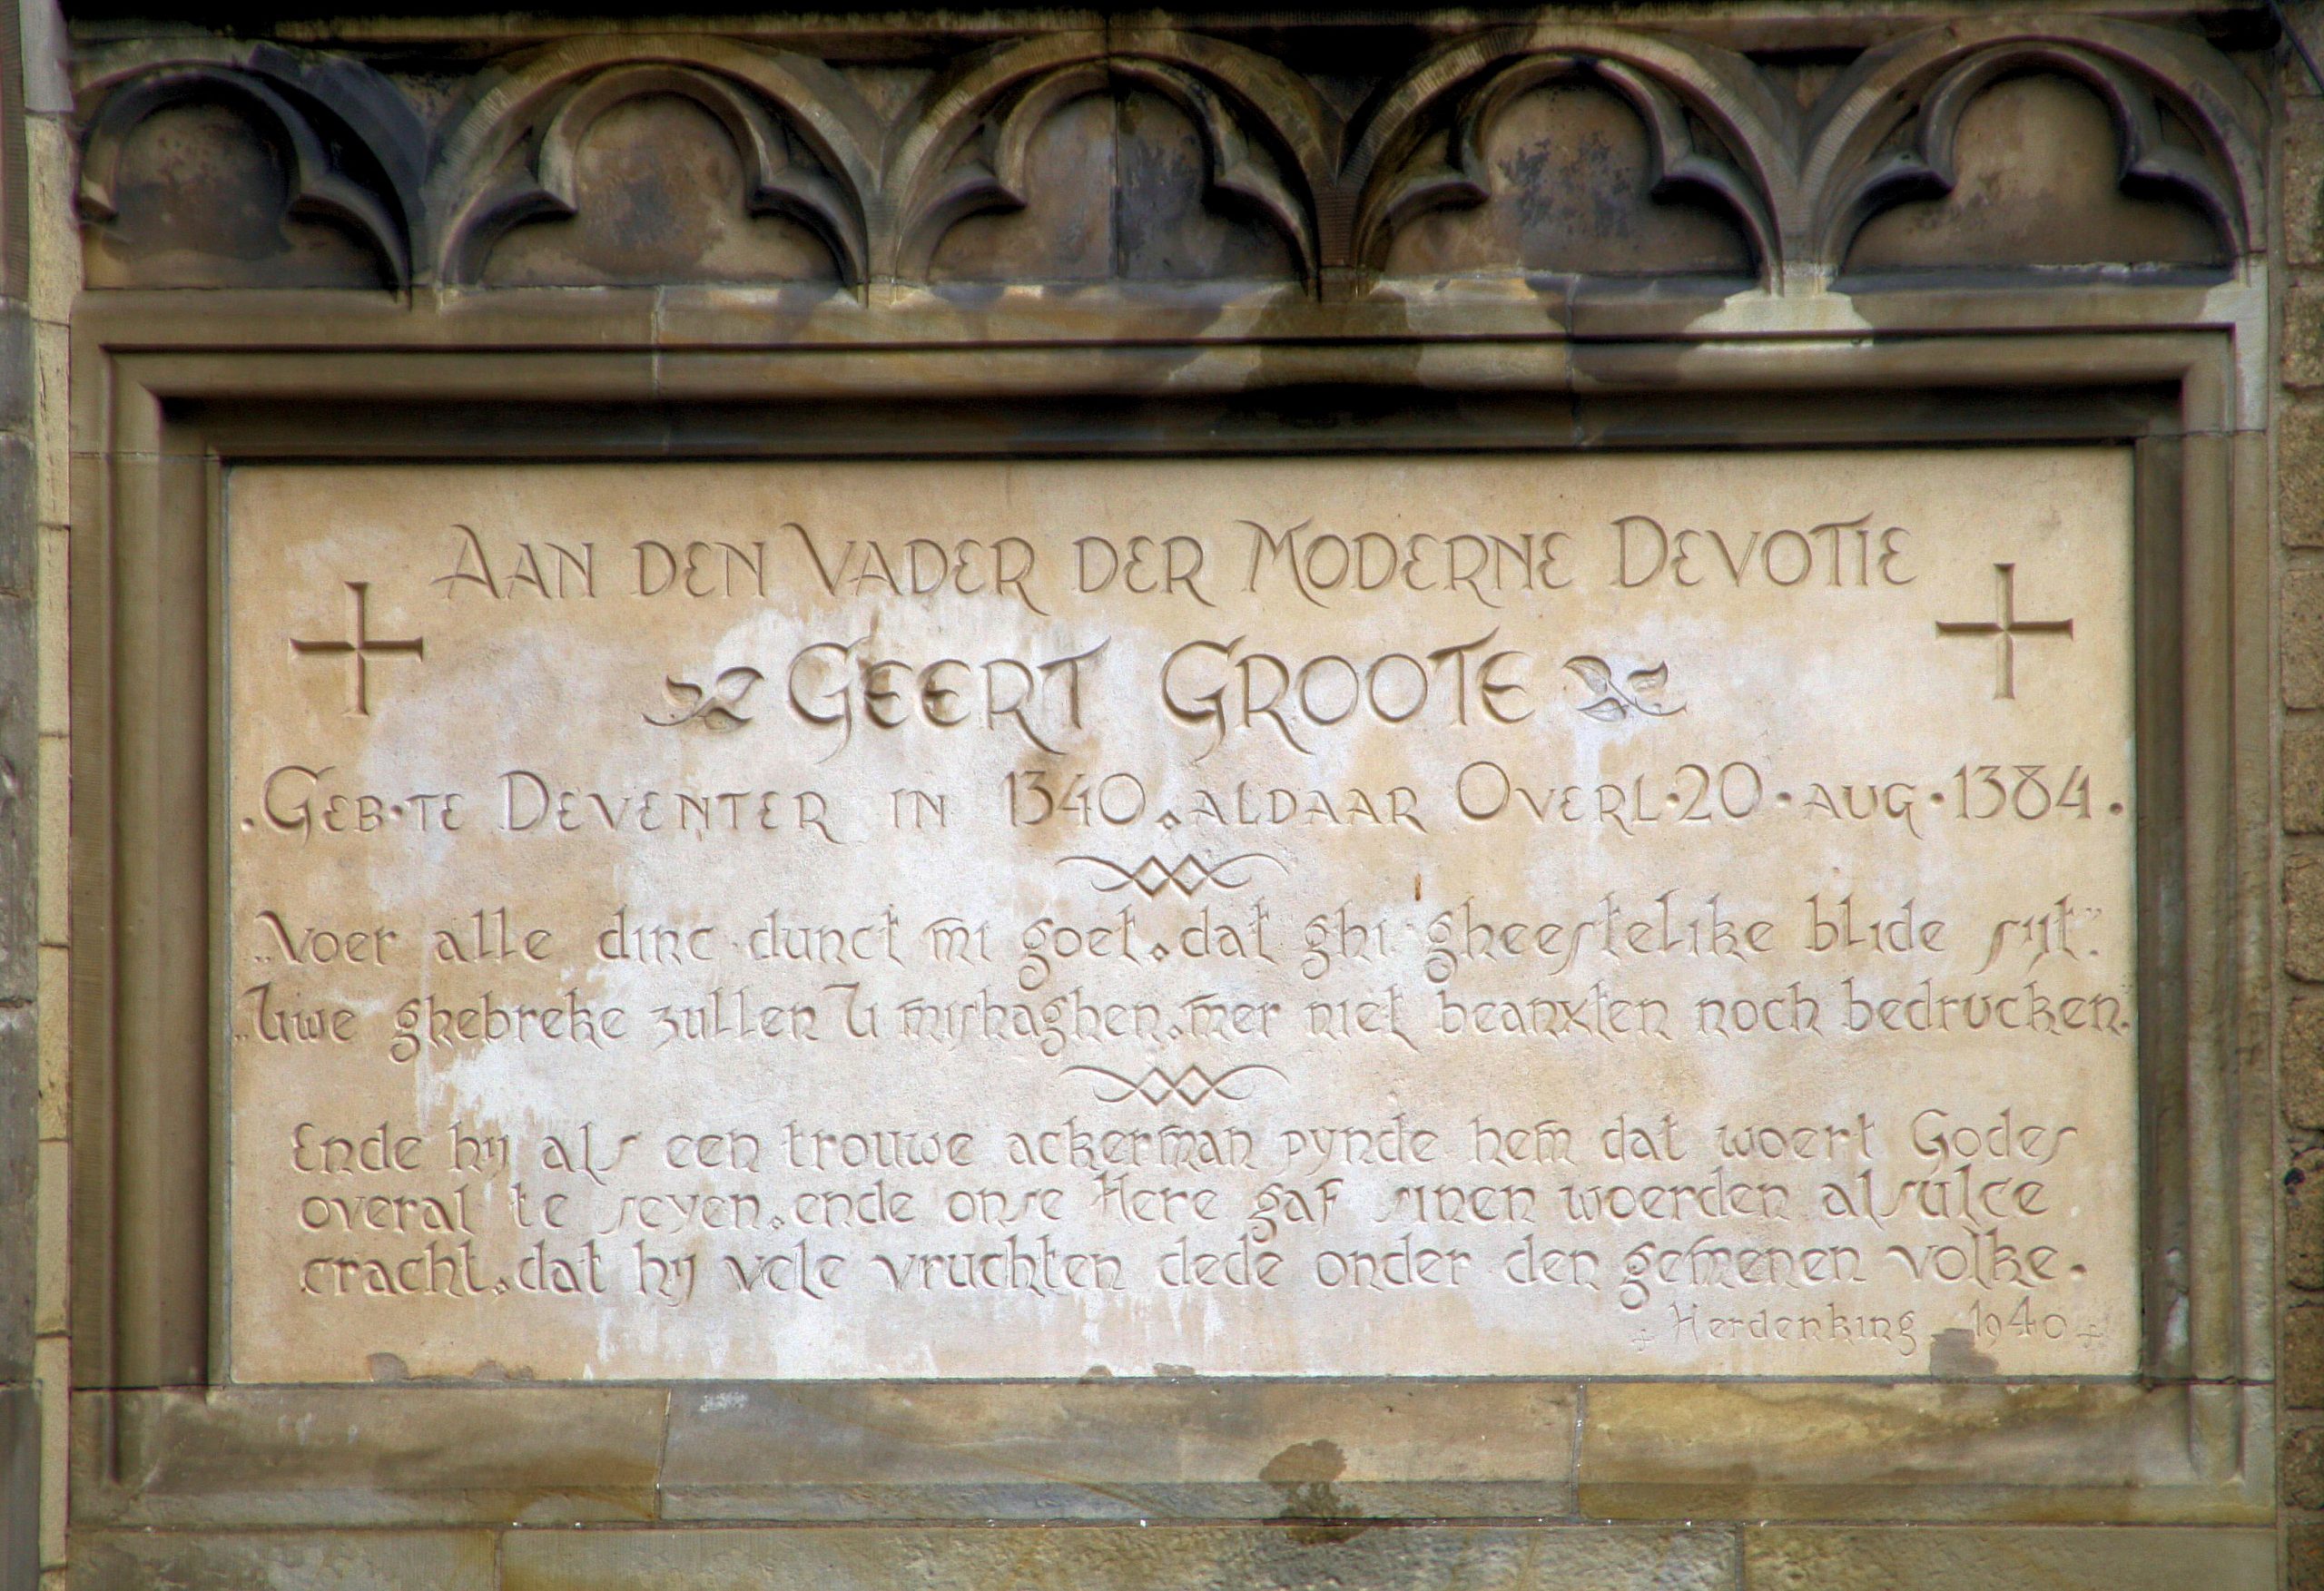 AAN DEN VADER DER MODERNE DEVOTIE
GEERT GROOTE
·GEB·TE DEVENTER IN 1340. ALDAAR OVERL·20·AUG·1384.
„Voer alle dinc dunct mi goet. dat ghi gheestelike blide sijt".
„Uwe ghebreke zullen U mishaghen. mer niet beanxten noch bedrucken.
Ende hij als een trouwe ackerman pynde hem dat woert Godes
overal te seyen. ende onse Here gaf sinen woerden alsulce
cracht. dat hij vele vruchten dede onder den gemenen volke.
+ Herdenking 1940 +